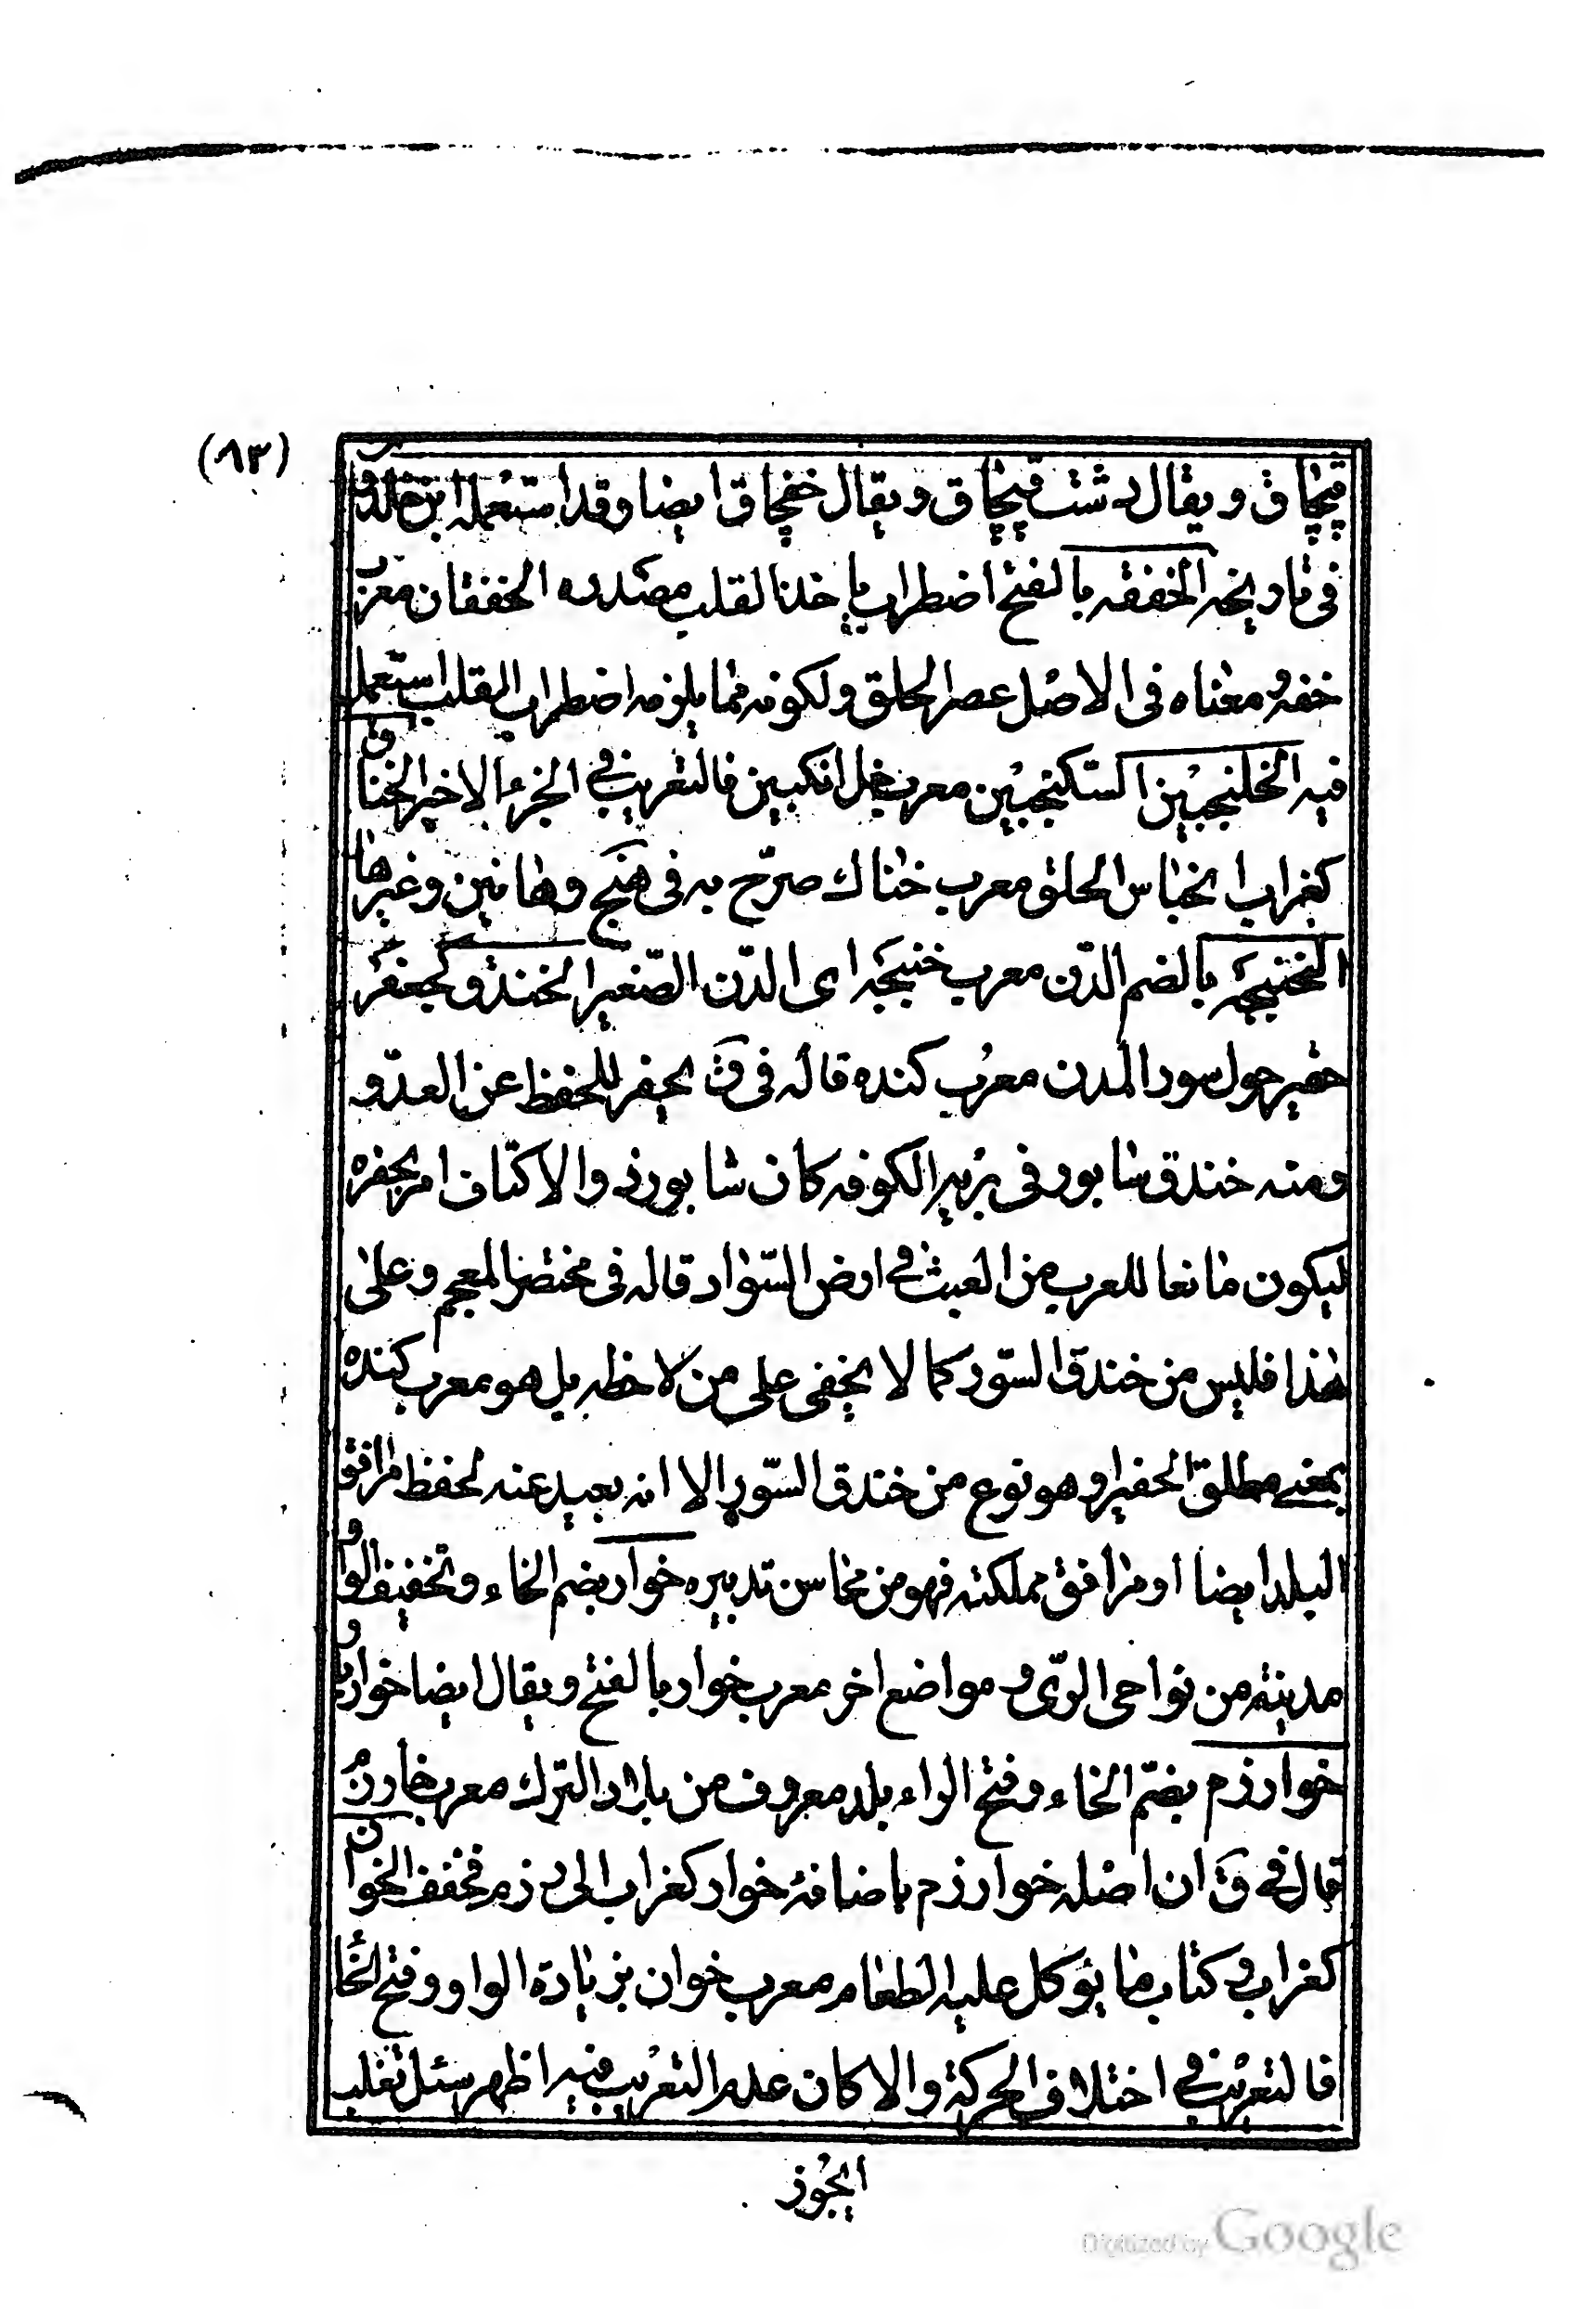 (٨٣)
قپچاق ويقال دشت قپچاق ويقال خفچاق ايضا وقد استعمله ابن خلدون
فى تاريخه الخفقه بالفتح اضطراب ياخذ القلب مصدره الخفقان معرب
خفه ومعناه فى الاصل عصر الحلق ولكونه مما يلزمه اضطراب القلب استعمل
فيه الخلنجبين السكنجبين معرب خل انكبين فالتعريب في الجزء الاخير الخناق
كغراب انخناس الحلق معرب خناك صرّح به فى هَنَج وهامين وغيرها
الخنبيجَه بالضم الدّن معرب خنبچَه اى الدّن الصّغير الخندق كجعفر
حفير حول سور المدن معرب كنده قاله فى قَ يحفر للحفظ عن العدّو
ومنه خندق شابور فى بريه الكوفه كان شابور ذو الاكتاف امر بحفره
ليكون مانعا للعرب من العبث في ارض السّواد قاله فى مختصر المعجم وعلى
هذا فليس من خندق السّور كما لا يخفى على من لاحظه بل هو معرب كنده
بمعنے مطلق الحفير او هو نوع من خندق السّور الا انه بعيد عنه لحفظ مرافق
البلد ايضا او مرافق مملكته فهو من محاسن تدبيره خوار بضم الخاء وتخفيف الواو
مدينة من نواحى الرّى و مواضع اخر معرب خوار بالفتح ويقال ايضا خوارى
خوارزم بضّم الخاء وفتح الراء بلد معروف من بلاد الترك معرب خارزم
قال فے قَ ان اصله خوار رزم باضافة خوار كغراب الى رزم فخفف الخوان
كغراب و كتاب ما يوكل عليه الطعام معرب خوان بزيادة الواو وفتح الخاء
فالتعريب في اختلاف الحركة والا كان عدم التعريب فيه اظهر سئل ثعلب
ايجوز
Digitized by Google